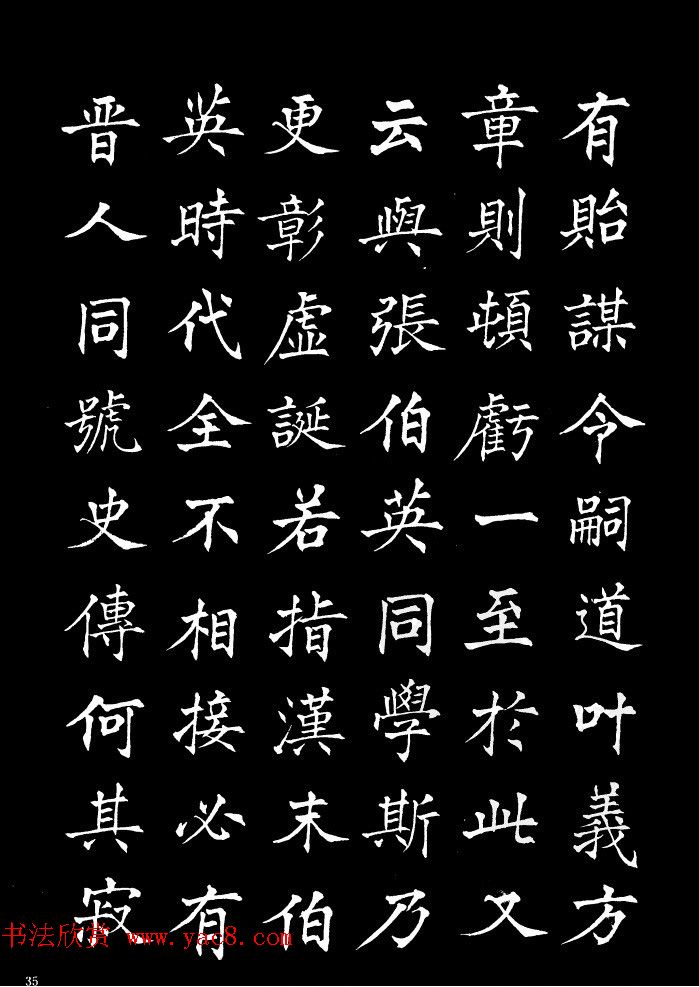 有貽謀令嗣道叶義方
章則頓虧一至於此又
云與張伯英同學斯乃
更彰虛誕若指漢末伯
英時代全不相接必有
晋人同號史傳何其寂
书法欣赏 www.yac8.com
35